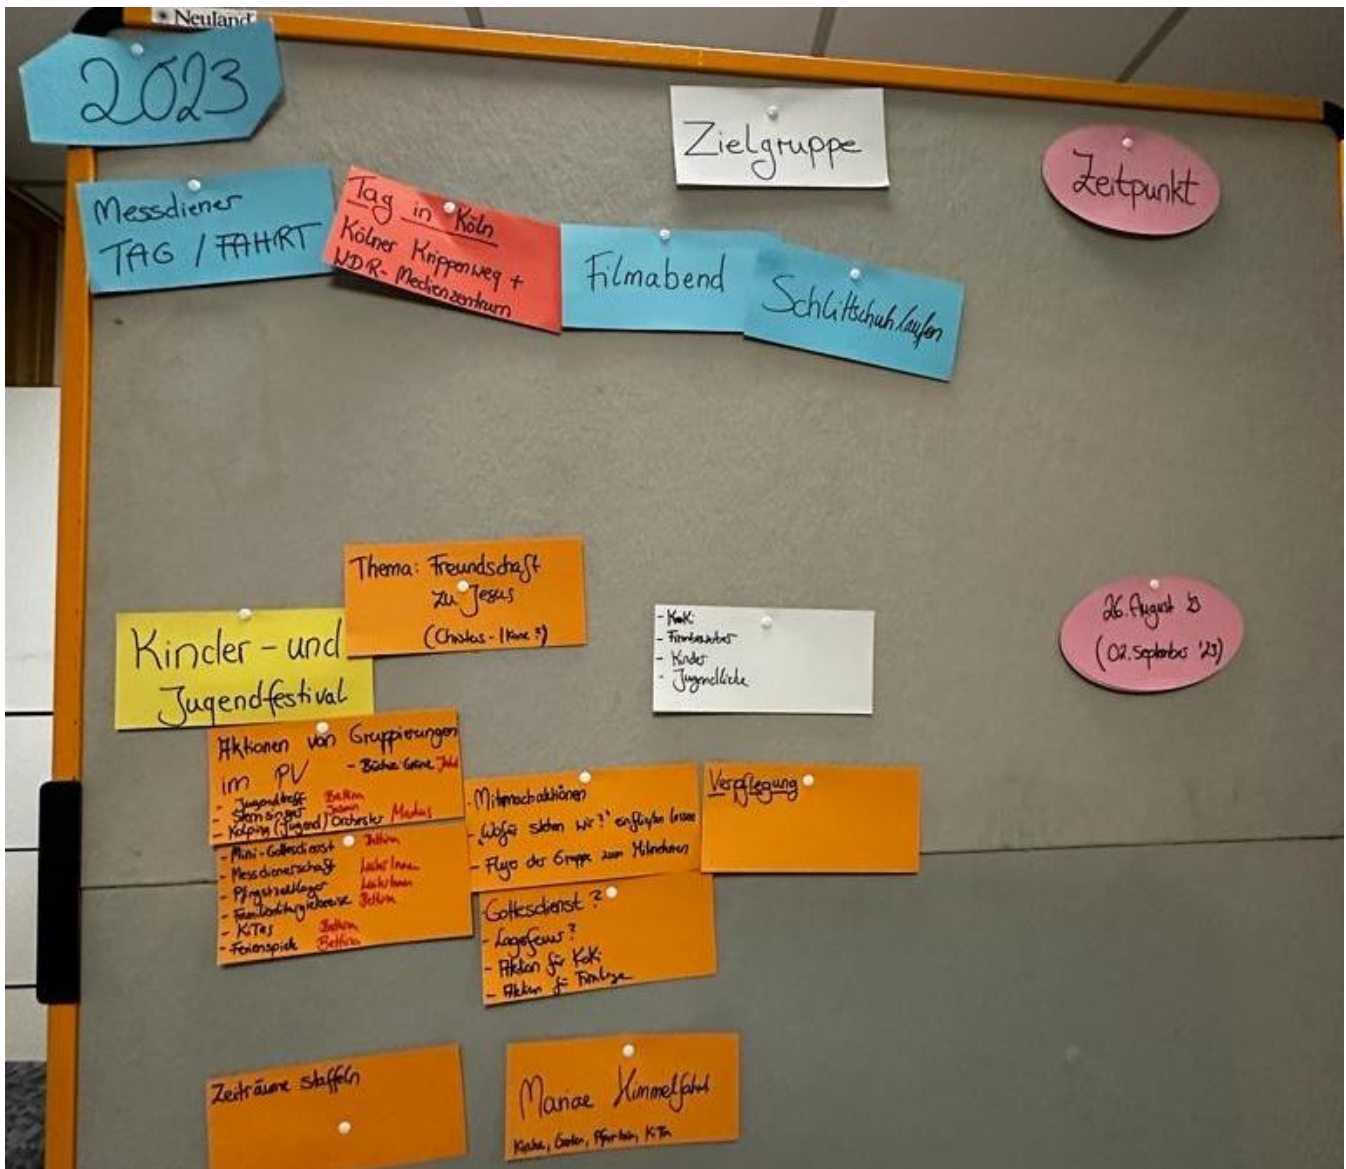 Neuland
2023
Zielgruppe
Zeitpunkt
Messdiener
TAG / FAHRT
Tag in Köln
Kölner Krippenweg +
WDR-Medienzentrum
Filmabend
Schlittschuhlaufen
Thema: Freundschaft
zu Jesus
(Christus-Ikone?)
Kinder- und
Jugendfestival
- KoKi
- Firmbewerber
- Kinder
- Jugendliche
26. August '23
(02. September '23)
Aktionen von Gruppierungen
im PV
- Jugendtreff Bettina
- Sternsinger
- Kolping (Jugend) Orchester Markus
- Mini-Gottesdienst Bettina
- Messdienerschaft
- Pfingstzeltlager
- Familienliturgiekreise Bettina
- KiTas Bettina
- Ferienspiele Bettina
- Mitmachaktionen
- "Wofür stehen wir?" einfließen lassen
- Flyer der Gruppe zum Mitnehmen
Verpflegung
Gottesdienst?
- Lagerfeuer?
- Aktion für KoKi
- Aktion für
Zeiträume staffeln
Mariae Himmelfahrt
Kirche, Garten, Pfarrheim, KiTa